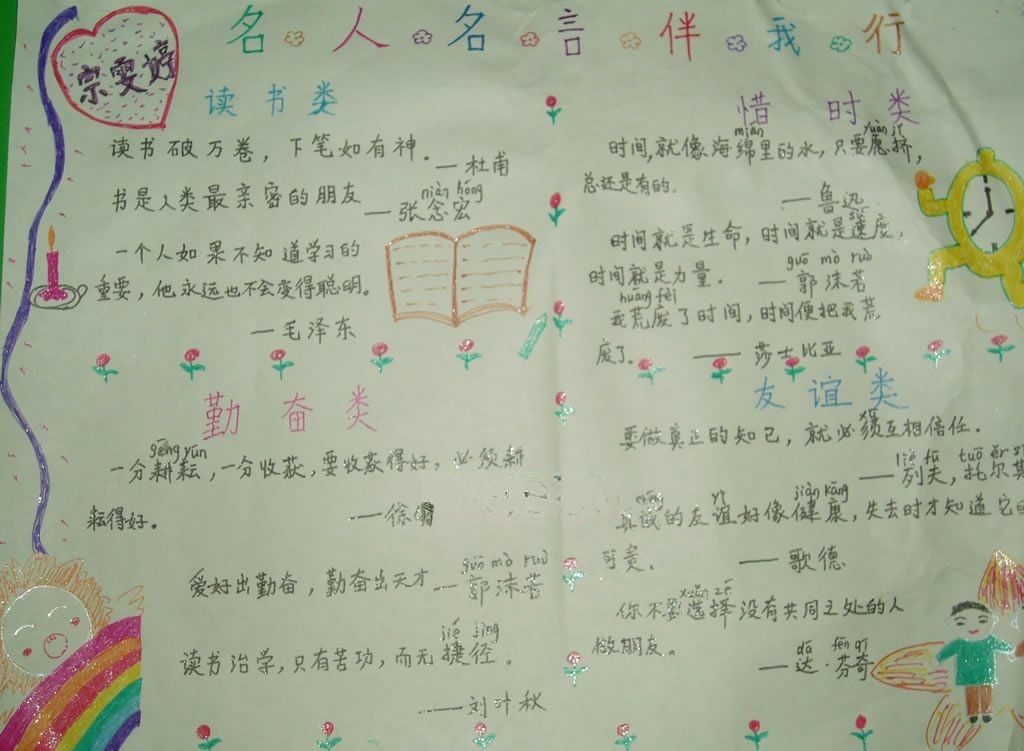 名人名言伴我行
宗雯婷
读书类
读书破万卷，下笔如有神。
—杜甫
书是人类最亲密的朋友
niàn hóng
—张念宏
一个人如果不知道学习的
重要，他永远也不会变得聪明。
—毛泽东
惜时类
mián yuàn jǐ
时间,就像海绵里的水，只要愿挤，
总还是有的。
—鲁迅
sù
时间就是生命，时间就是速度，
时间就是力量．
guō mò ruò
—郭沫若
huāng fèi
我荒废了时间，时间便把我荒
废了。
——莎士比亚
勤奋类
gēng yún
一分耕耘，一分收获，要收获得好，必须耕
耘得好。
——徐
爱好出勤奋，勤奋出天才
guō mò ruò
—郭沫若
jié jìng
读书治学，只有苦功，而无捷径。
——刘叶秋
友谊类
要做真正的知己，就必须互相信任．
liè fū tuō ěr
—列夫，托尔
chéng yì jiàn kāng
真诚的友谊好像健康，失去时才知道它
可贵。
—歌德
xuǎn zé
你不要选择没有共同之处的人
做朋友。
dá fēn qí
—达·芬奇